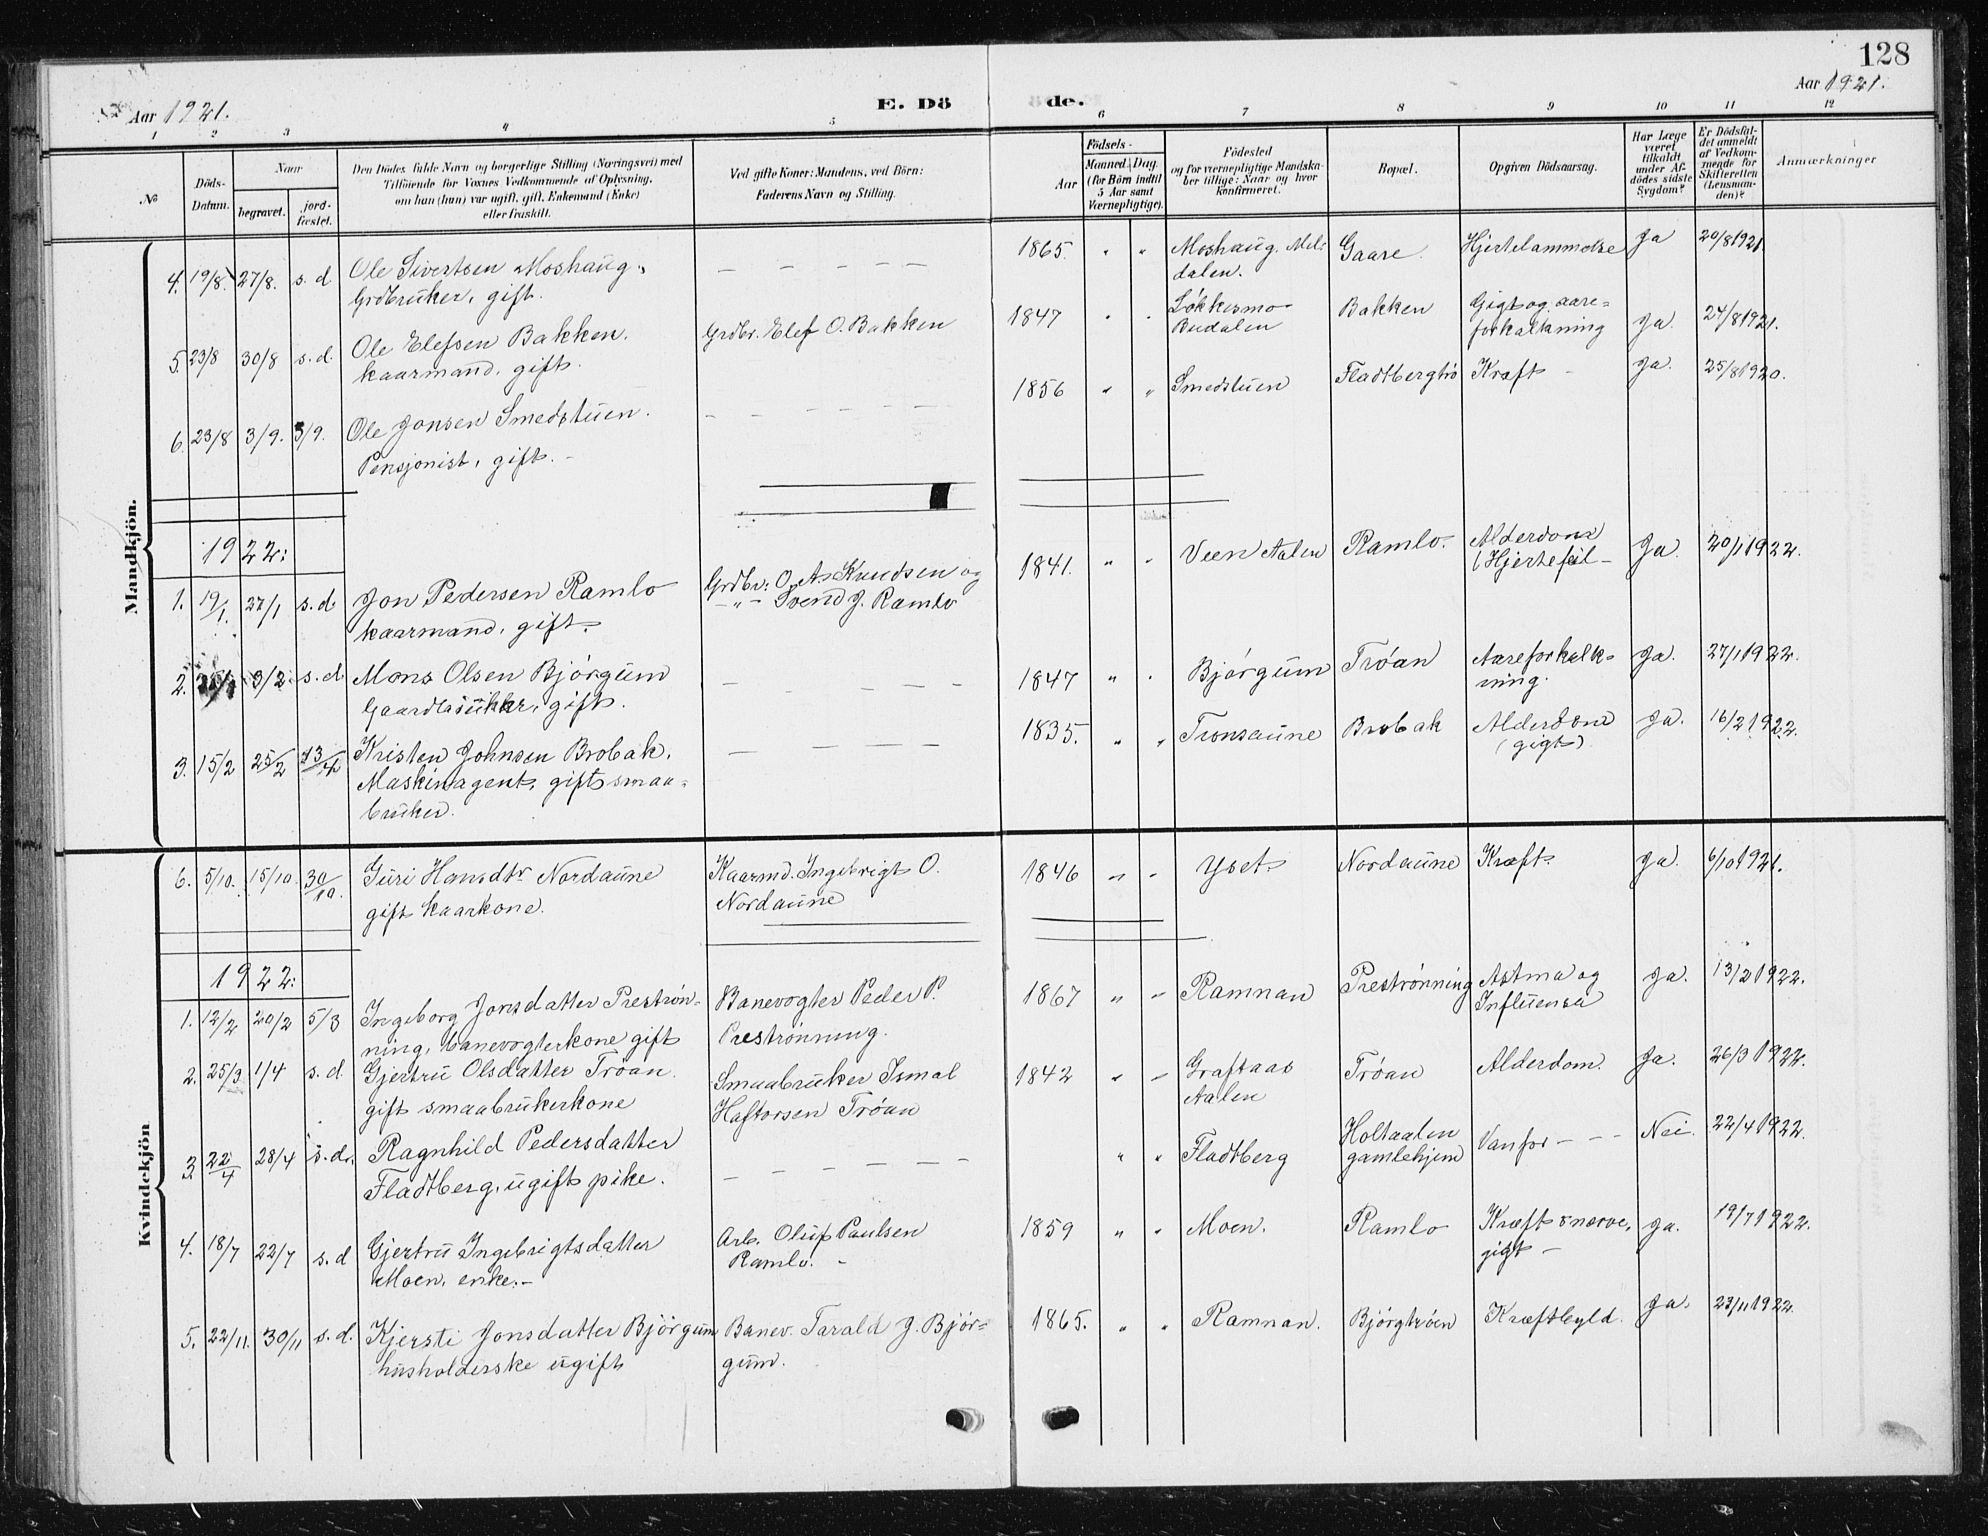 128
Aar 1921.
E. Dö de.
Aar 1921.
1 2 3 4 5 6 7 8 9 10 11 12
№
Döds-Datum.
Naar
begravet.
jord-fæstet.
Den Dödes fulde Navn og borgerlige Stilling (Næringsvei) med
Tilföiende for Voxnes Vedkommende af Oplysning,
om han (hun) var ugift, gift, Enkemand (Enke)
eller fraskilt.
Ved gifte Koner: Mandens, ved Börn:
Faderens Navn og Stilling.
Födsels-
Aar
Maaned Dag.
(for Börn indtil
5 Aar samt
Værnepligtige).
Födested
og for værnepligtige Mandska-
ber tillige: Naar og hvor
konfirmeret.
Bopæl.
Opgiven Dödsaarsag.
Har Læge
været
tilkaldt
under Af-
dödes sidste
Sygdom?
Er Dödsfal-
det anmeldt
af Vedkom-
mende for
Skifteretten
(Lensman-
den)?
Anmærkninger
Mandkjön.
4. 19/8. 27/8. s. d. Ole Sivertsen Moshaug, — — — — — 1865. " " Moshaug. Mel- Gaare. Hjertelammelse Ja 20/8 1921
Grdbruker, gift. dalen.
5. 23/8 30/8 s. d. Ole Elefsen Bakken. Grdbr. Elef O. Bakken 1847 " " Løkkesmo Bakken Gigt og aare= Ja. 24/8 1921.
kaarmand, gift. Budalen forkalkning
6. 23/8 3/9. 3/9. Ole Jonsen Smedstuen. — — — — — 1856 " " Smedstuen Fladtbergtrø Kræft — Ja. 25/8 1920.
Pensjonist, gift. —
1922:
1. 19/1. 27/1 s. d. Jon Pedersen Ramlo Grdbr: O. As. Knudsen og 1841. " " Veen Aalen Ramlo. Alderdom Ja. 20/1 1922.
kaarmand, gift. — " — Svend J. Ramlo (Hjertefeil —
2. 3/2. s. d. Mons Olsen Bjørgum — — — — — 1847 " " Bjørgum Trøan Aareforkalk- Ja. 27/1 1922.
Gaardbruker, gift. ning.
3. 15/2 25/2 23/4 Kristen Johnsen Brobak, — — — — — 1835. " " Tronsaune Brobak Alderdom Ja. 16/2 1922.
Maskinagent, gift smaa- (gigt)
bruker.
Kvindekjön
6. 5/10. 15/10. 30/10. Guri Hansdtr Nordaune Kaarmd. Ingebrigt O. 1846 " " Yset. Nordaune Kræft. Ja. 6/10 1921.
gift kaarkone. Nordaune
1922:
1. 12/2 20/2 5/3 Ingeborg Jonsdatter Prestrøn- Banevogter Peder P. 1867 " " Ramnan Prestrønning Astma og Ja. 13/2 1922.
ning, banevogterkone gift Prestrønning. Influensa
2. 25/3 1/4 s. d. Gjertru Olsdatter Trøan. Smaabruker Ismal 1842 " " Graftaas Trøan Alderdom. Ja. 26/3 1922.
gift smaabrukerkone Haftorsen Trøan Aalen
3. 22/4 28/4 s. d. Ragnhild Pedersdatter — — — — — " " Fladtberg Holtaalen Vanfør — — — Nei. 22/4 1922.
Fladtberg, ugift pike. gamlehjem
4. 18/7 22/7 s. d Gjertru Ingebrigtsdatter Arb. Oluf Paulsen 1859 " " Moen. Ramlo Kræft nerve, Ja. 19/7 1922.
Moen, enke. — Ramlo. — gigt —
5. 22/11. 30/11 s. d. Kjersti Jonsdatter Bjørgum Banev. Tarald J. Bjør- 1865. " " Ramnan. Bjørgtrøen Kræftbyld. Ja. 23/11 1922.
husholderske ugift gum.